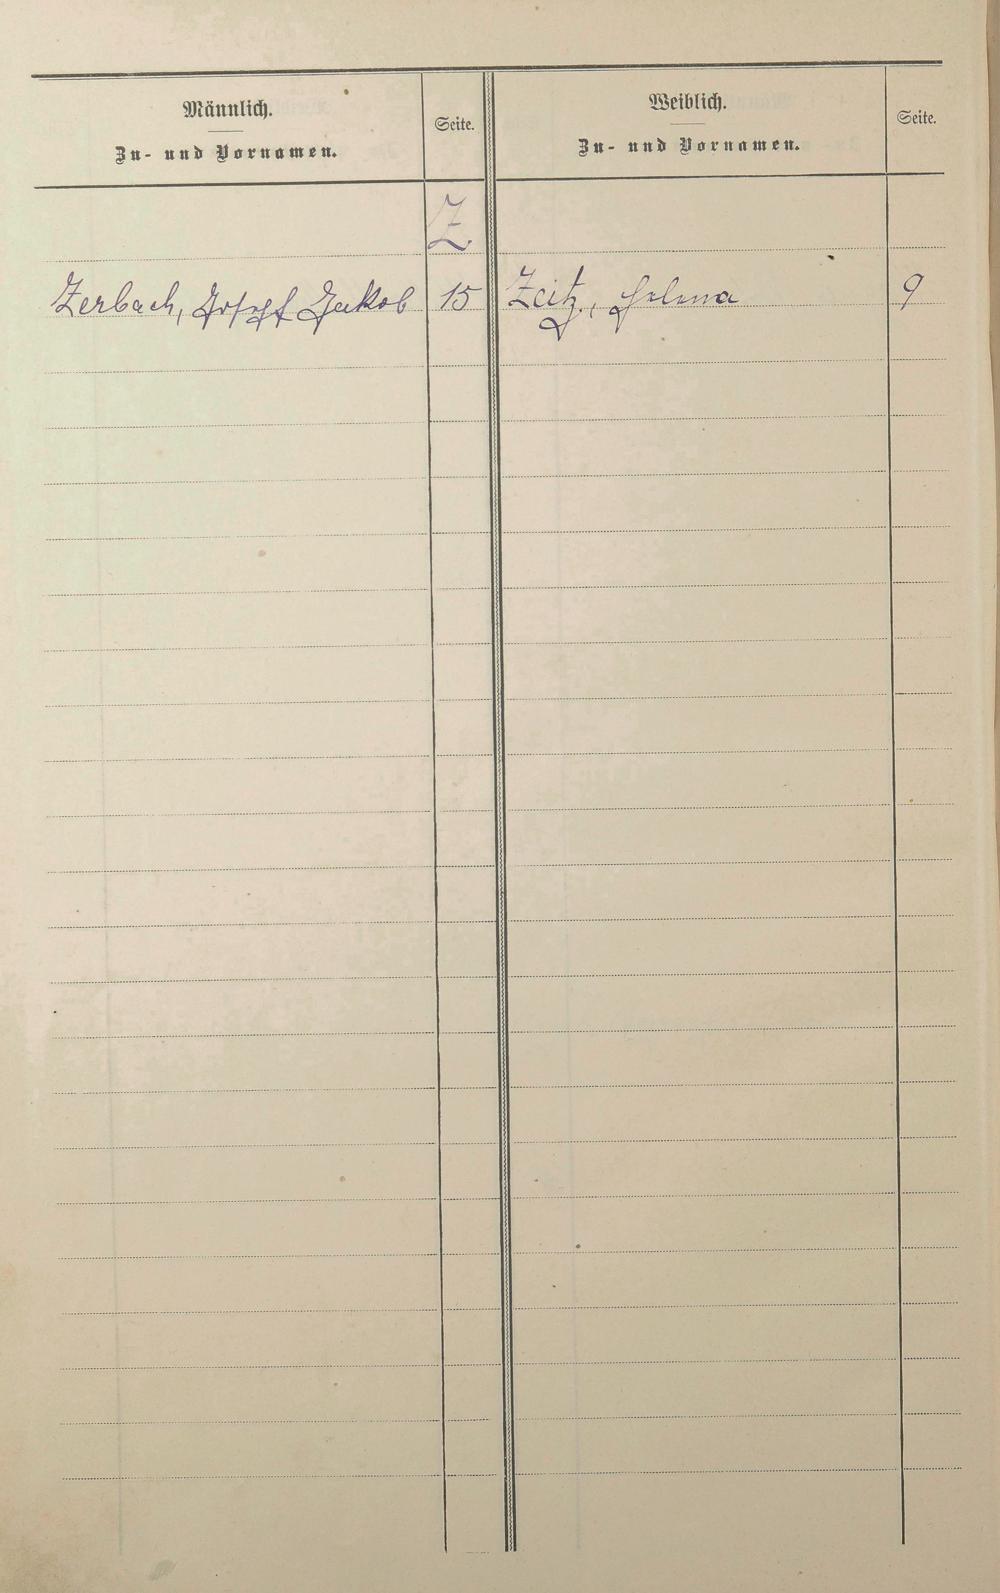 Männlich. Weiblich.
Zu- und Vornamen. Seite. Zu- und Vornamen. Seite.
Z.
Zerbach, Josef Jakob 15 Zeitz, Helena 9